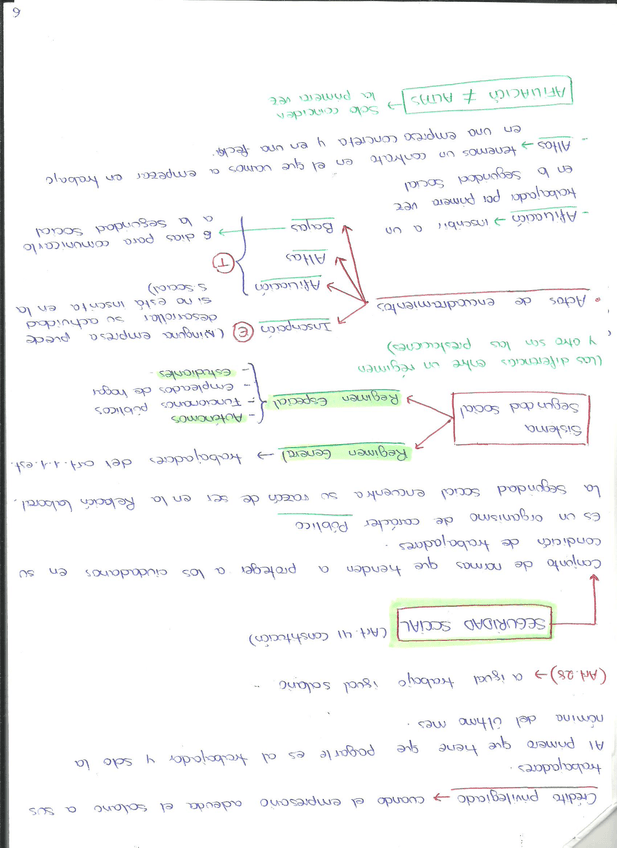 Crédito privilegiado → cuando el empresario adeuda el salario a sus
trabajadores.
Al primero que tiene que pagarle es al trabajador y solo la
nómina del último mes.
(Art. 28) → a igual trabajo igual salario
SEGURIDAD SOCIAL (Art. 41 Constitución)
Conjunto de normas que tienden a proteger a los ciudadanos en su
condición de trabajadores.
Es un organismo de carácter Público
La Seguridad social encuentra su razón de ser en la Relación laboral.
Sistema
Seguridad social
Regimen General → trabajadores del art. 1.1. est.
Regimen Especial
- Autónomos
- Funcionarios públicos
- Empleados de hogar
- Estudiantes
(Las diferencias entre un régimen
y otro son las prestaciones)
• Actos de encuadramientos
Inscripción (E) (Ninguna empresa puede
desarrollar su actividad
si no está inscrita en la
s. social)
Afiliación
Altas
(T)
Bajas → 6 dias para comunicarlo
a la seguridad social
- Afiliación → inscribir a un
trabajador por primera vez
en la Seguridad social
- Altas → tenemos un contrato en el que vamos a empezar en trabajo
en una empresa concreta y en una fecha.
AFILIACIÓN ≠ ALTAS → Solo coinciden
la primera vez
6